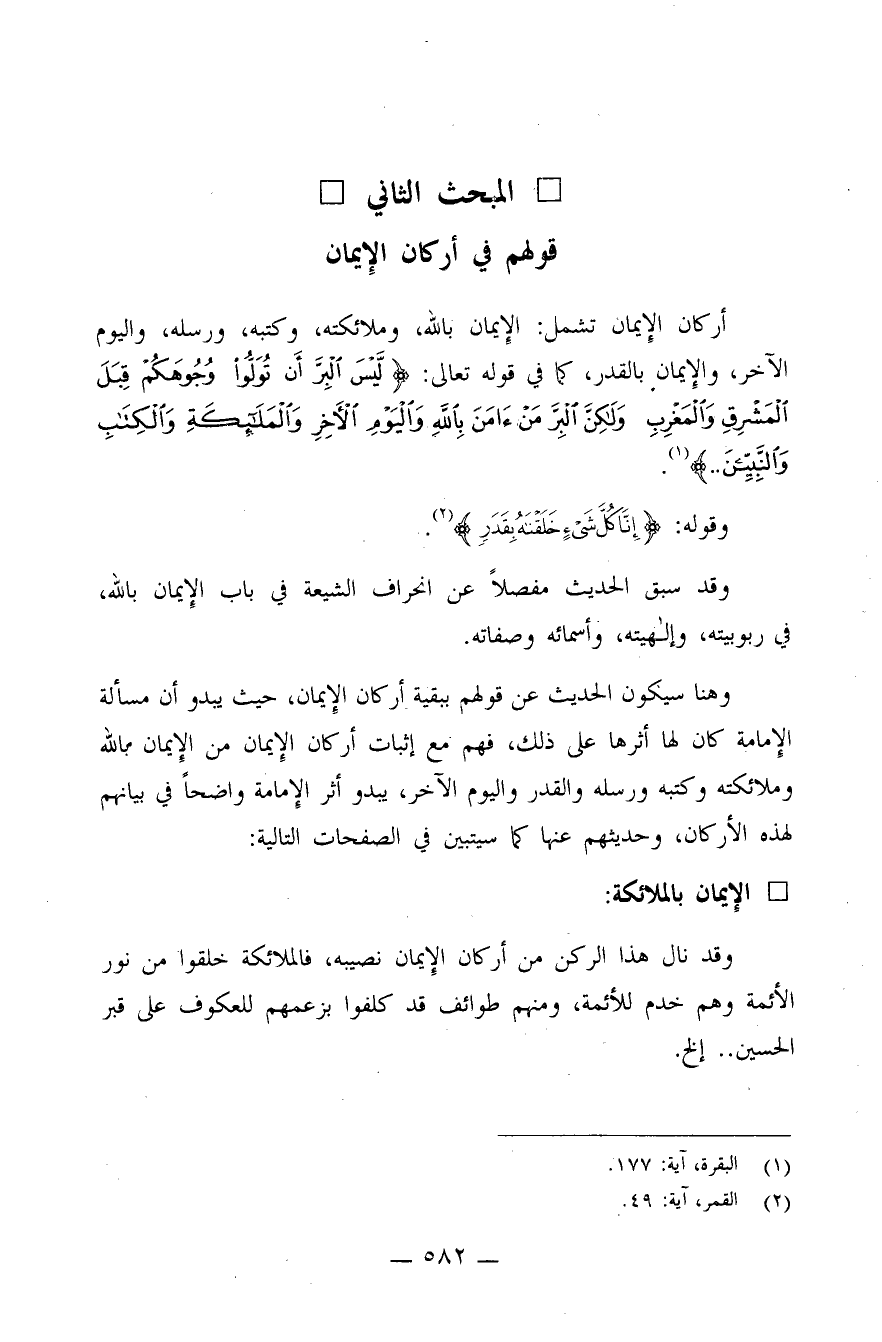 □ المبحث الثاني □
قولهم في أركان الإيمان
أركان الإيمان تشمل: الإيمان بالله، وملائكته، وكتبه، ورسله، واليوم
الآخر، والإيمان بالقدر، كما في قوله تعالى: ﴿ لَّيْسَ ٱلْبِرَّ أَن تُوَلُّوا۟ وُجُوهَكُمْ قِبَلَ
ٱلْمَشْرِقِ وَٱلْمَغْرِبِ وَلَٰكِنَّ ٱلْبِرَّ مَنْ ءَامَنَ بِٱللَّهِ وَٱلْيَوْمِ ٱلْأَخِرِ وَٱلْمَلَٰٓئِكَةِ وَٱلْكِتَٰبِ
وَٱلنَّبِيِّۦنَ..﴾(١).
وقوله: ﴿ إِنَّا كُلَّ شَىْءٍ خَلَقْنَٰهُ بِقَدَرٍ ﴾(٢).
وقد سبق الحديث مفصلاً عن انحراف الشيعة في باب الإيمان بالله،
في ربوبيته، وإلٰهيته، وأسمائه وصفاته.
وهنا سيكون الحديث عن قولهم ببقية أركان الإيمان، حيث يبدو أن مسألة
الإمامة كان لها أثرها على ذلك، فهم مع إثبات أركان الإيمان من الإيمان بالله
وملائكته وكتبه ورسله والقدر واليوم الآخر، يبدو أثر الإمامة واضحاً في بيانهم
لهذه الأركان، وحديثهم عنها كما سيتبين في الصفحات التالية:
□ الإيمان بالملائكة:
وقد نال هذا الركن من أركان الإيمان نصيبه، فالملائكة خلقوا من نور
الأئمة وهم خدم للأئمة، ومنهم طوائف قد كلفوا بزعمهم للعكوف على قبر
الحسين.. إلخ.
(١) البقرة، آية: ١٧٧.
(٢) القمر، آية: ٤٩.
— ٥٨٢ —